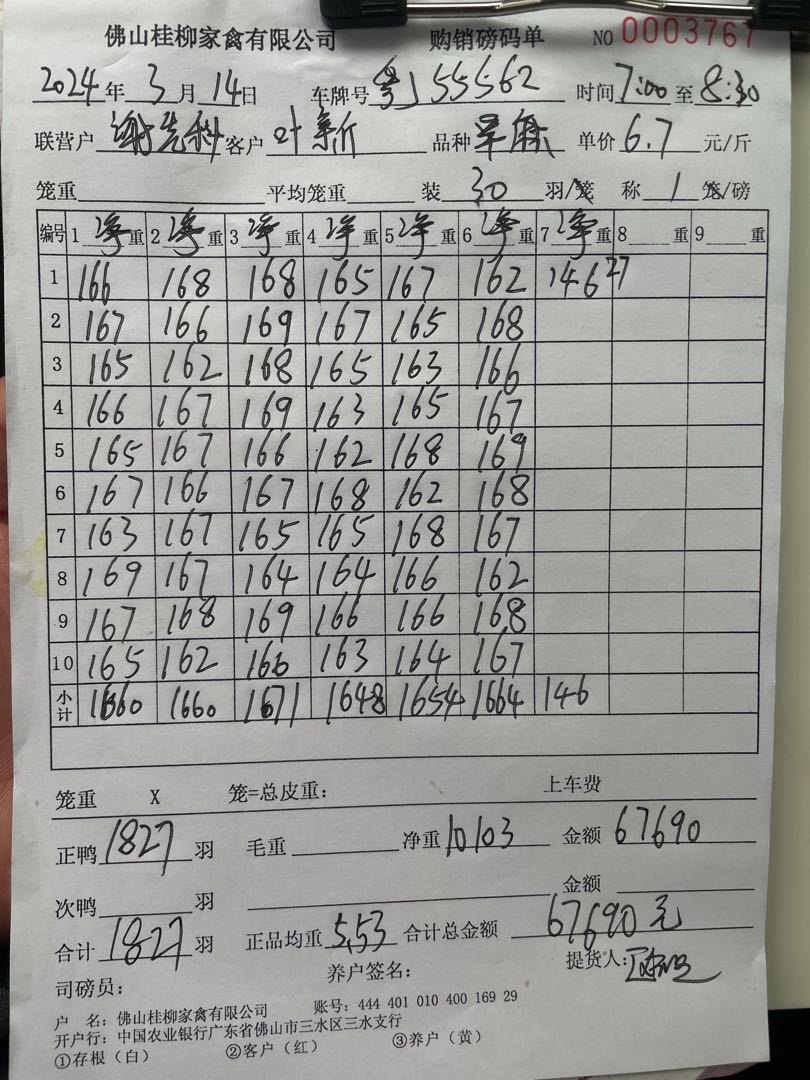 佛山桂柳家禽有限公司 购销磅码单 NO 0003767
2024年 3月 14日 车牌号 粤J55562 时间 7:00 至 8:30
联营户 谢先科 客户 叶新 品种 单价 6.7 元/斤
笼重 平均笼重 装 30 羽/笼 称 1 笼/磅
编号 1 净 重 2 净 重 3 净 重 4 净 重 5 净 重 6 净 重 7 净 重 8 重 9 重
1 166 168 168 165 167 162 146 27
2 167 166 169 167 165 168
3 165 162 168 165 163 166
4 166 167 169 163 165 167
5 165 167 166 162 168 169
6 167 166 167 168 162 168
7 163 167 165 165 168 167
8 169 167 164 164 166 162
9 167 168 169 166 166 168
10 165 162 166 163 164 167
小计 1660 1660 1671 1648 1654 1664 146
笼重 X 笼=总皮重： 上车费
正鸭 1827 羽 毛重 净重 10103 金额 67690
次鸭 羽 金额
合计 1827 羽 正品均重 5.53 合计总金额 67690元
司磅员： 养户签名： 提货人：
户 名：佛山桂柳家禽有限公司 账号：444 401 010 400 169 29
开户行：中国农业银行广东省佛山市三水区三水支行
①存根（白） ②客户（红） ③养户（黄）